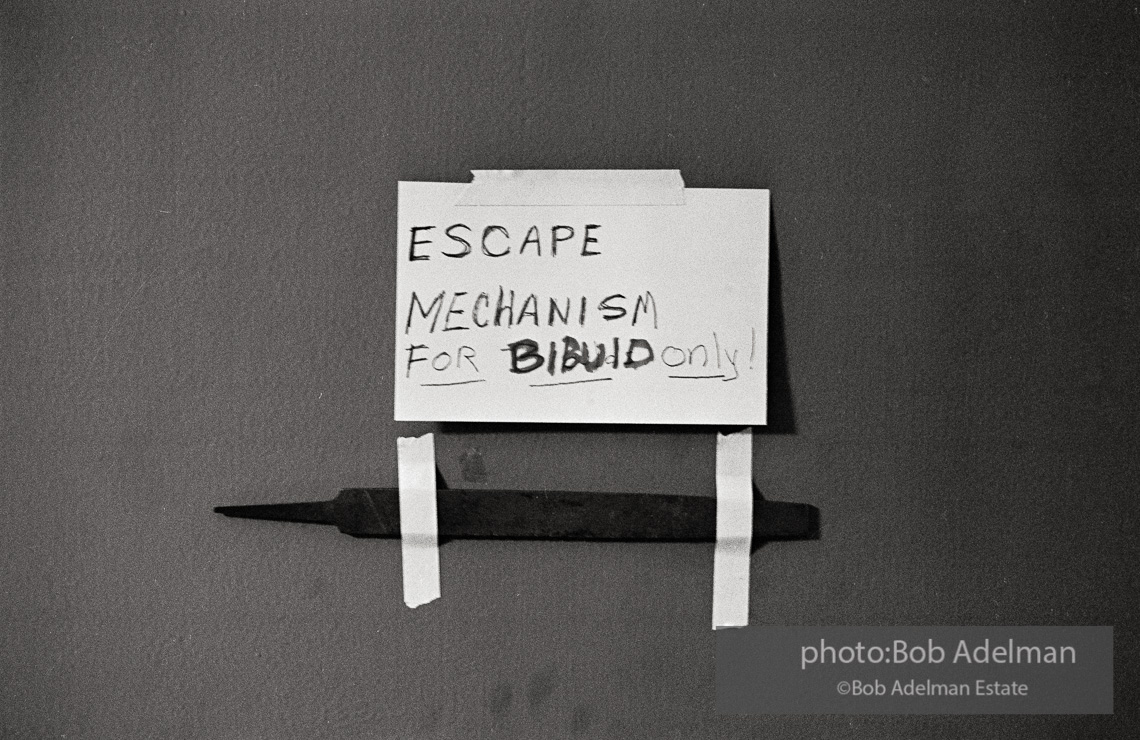 ESCAPE
MECHANISM
FOR BIBUID only!
photo:Bob Adelman
©Bob Adelman Estate